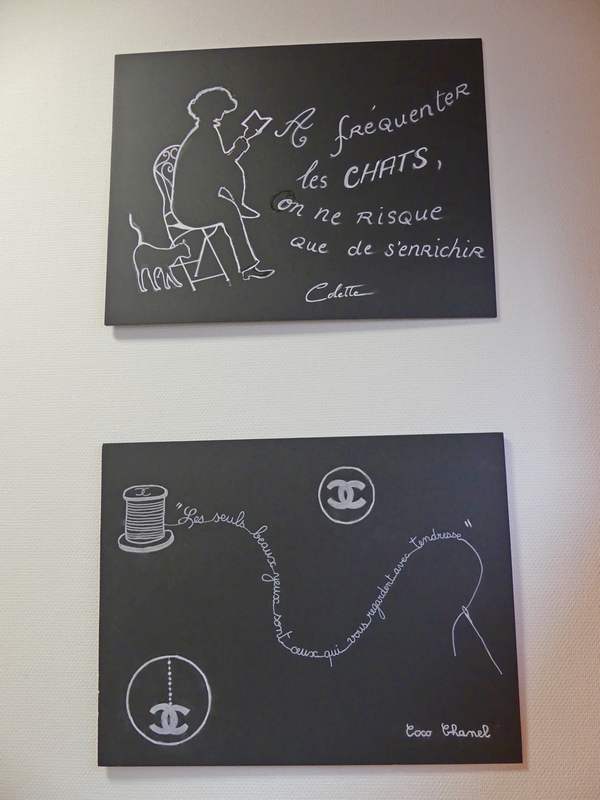 A fréquenter
les CHATS,
on ne risque
que de s'enrichir
Colette
"Les seuls beaux yeux sont ceux qui vous regardent avec tendresse"
Coco Chanel